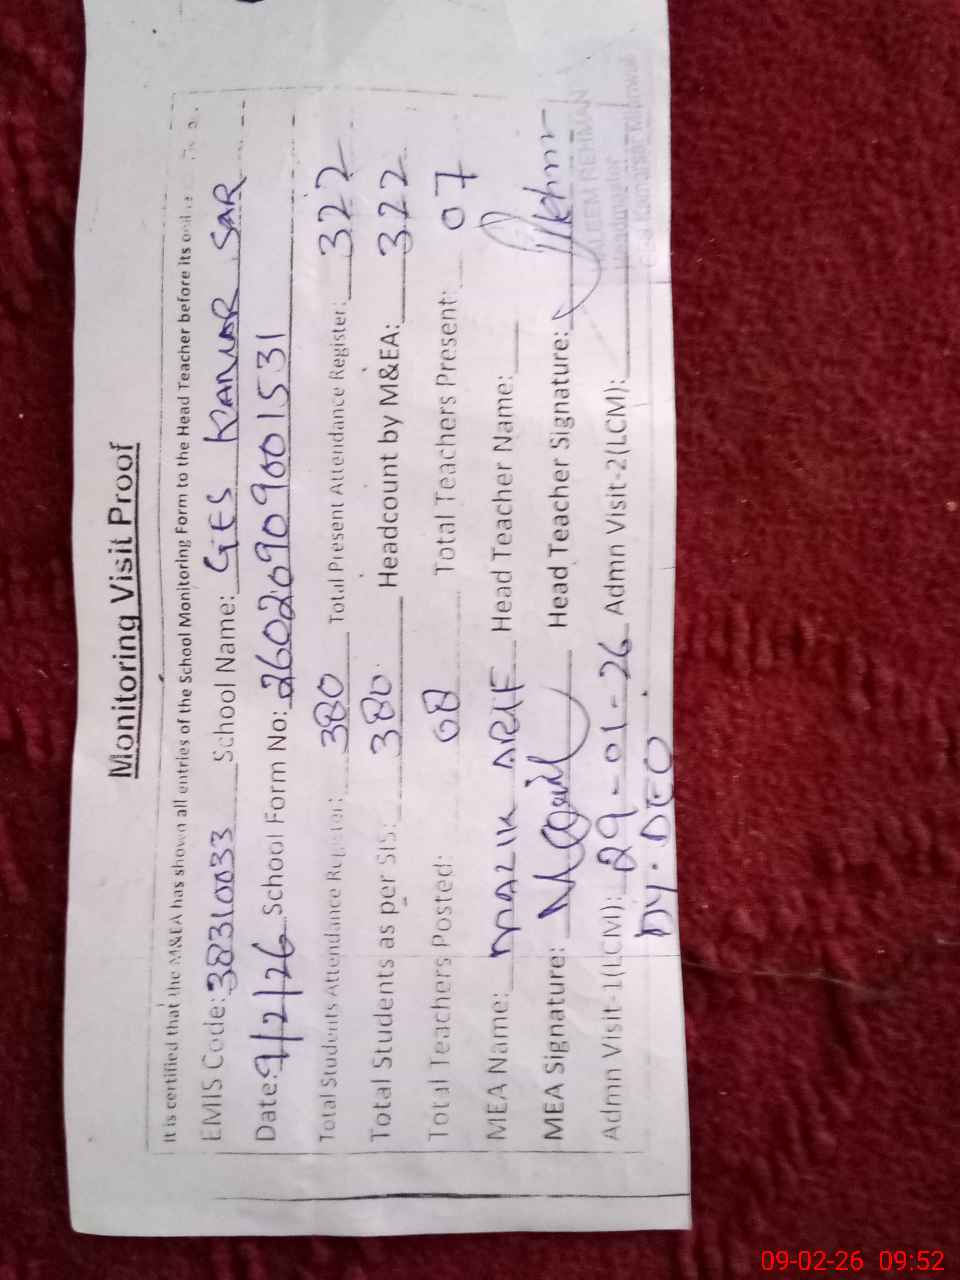 Monitoring Visit Proof
It is certified that the M&EA has shown all entries of the School Monitoring Form to the Head Teacher before its
EMIS Code: 38310033 School Name: GES KANAR SAR
Date: 9/2/26 School Form No: 2602090900 1531
Total Students Attendance Register: 380 Total Present Attendance Register: 322
Total Students as per SIS: 380 Headcount by M&EA: 322
Total Teachers Posted: 08 Total Teachers Present: 07
MEA Name: MALIK ARIF Head Teacher Name:
MEA Signature: Head Teacher Signature:
Admn Visit-1(LCM): 29-01-26 Admn Visit-2(LCM):
DY. DEO
REHMAN
Headmaster
09-02-26 09:52